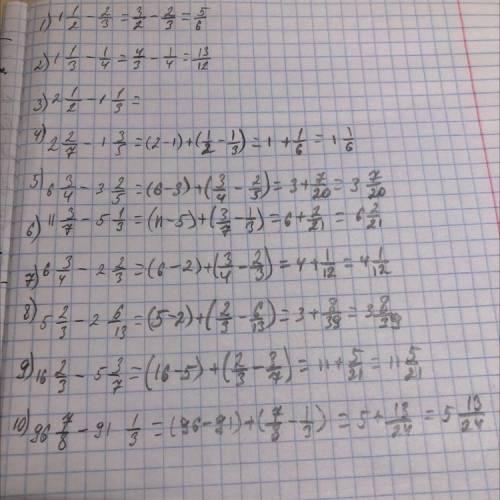 1) 1 1/2 - 2/3 = 3/2 - 2/3 = 5/6
2) 1 1/3 - 1/4 = 4/3 - 1/4 = 13/12
3) 2 1/2 - 1 1/3 =
4) 2 2/7 - 1 3/5 = (2-1)+(1/2 - 1/3) = 1 + 1/6 = 1 1/6
5) 6 3/4 - 3 2/5 = (6-3)+(3/4 - 2/5) = 3 + 7/20 = 3 7/20
6) 11 3/7 - 5 1/3 = (11-5)+(3/7 - 1/3) = 6 + 2/21 = 6 2/21
7) 6 3/4 - 2 2/3 = (6-2)+(3/4 - 2/3) = 4 + 1/12 = 4 1/12
8) 5 2/3 - 2 6/13 = (5-2)+(2/3 - 6/13) = 3 + 8/39 = 3 8/39
9) 16 2/3 - 5 3/7 = (16-5)+(2/3 - 3/7) = 11 + 5/21 = 11 5/21
10) 96 7/8 - 91 1/3 = (96-91)+(7/8 - 1/3) = 5 + 13/24 = 5 13/24